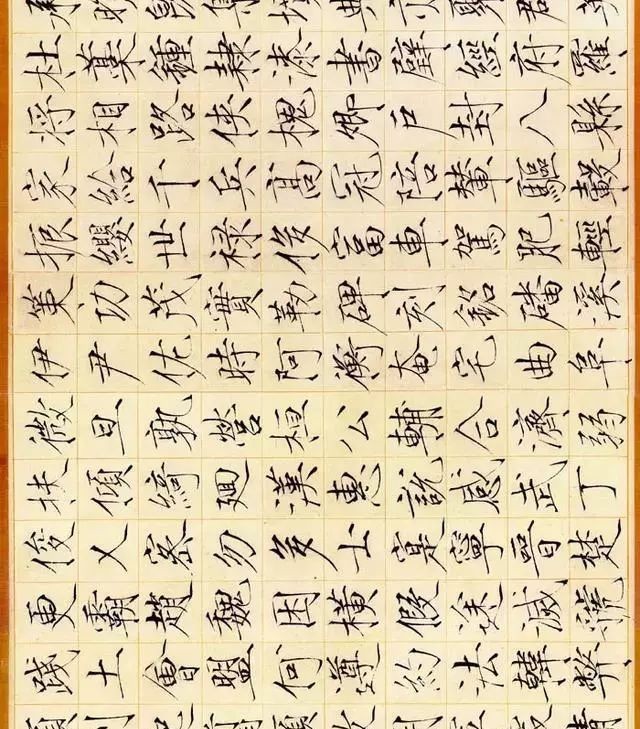 杜稾鍾隸漆書壁經府羅
將相路俠槐卿戶封八縣
家給千兵高冠陪輦驅轂
振纓世祿侈富車駕肥輕
策功茂實勒碑刻銘磻溪
伊尹佐時阿衡奄宅曲阜
微旦孰營桓公輔合濟弱
扶傾綺迴漢惠說感武丁
俊乂密勿多士寔寧晉楚
更霸趙魏困橫假途滅虢
踐土會盟何遵約法韓弊